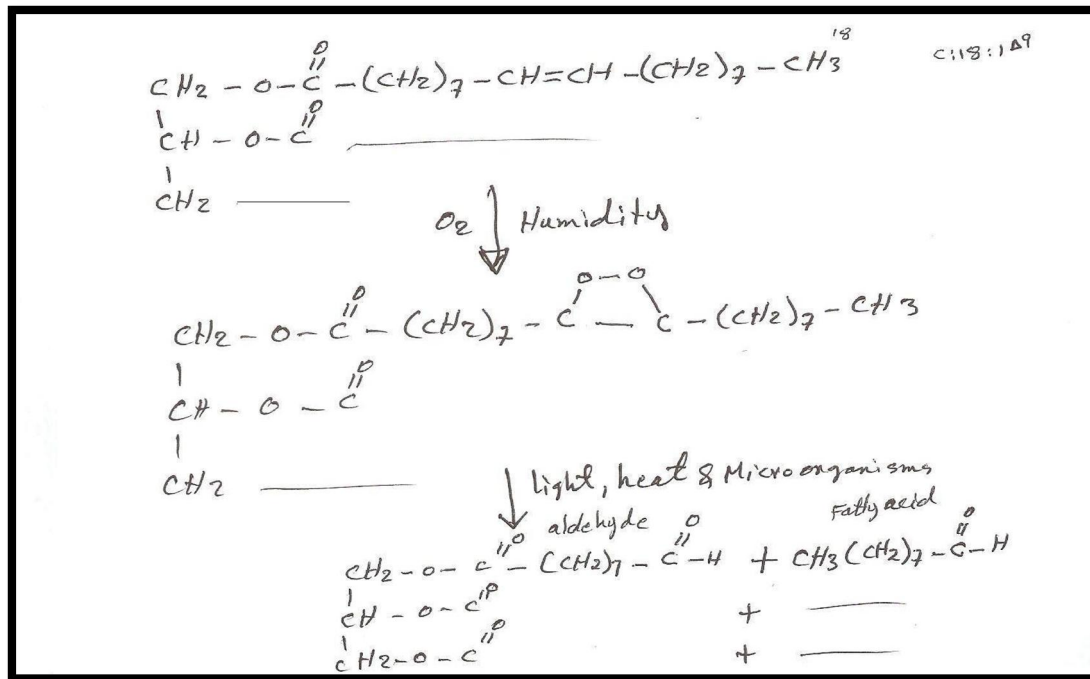 CH2 - O - C(=O) - (CH2)7 - CH=CH - (CH2)7 - CH3 18 C:18:1Δ9
CH - O - C(=O)
CH2
O2 Humidity
O - O
CH2 - O - C(=O) - (CH2)7 - C - C - (CH2)7 - CH3
CH - O - C(=O)
CH2
light, heat & Microorganisms
aldehyde Fatty acid
CH2 - O - C(=O) - (CH2)7 - C(=O) - H + CH3(CH2)7 - C(=O) - H
CH - O - C(=O) +
CH2 - O - C(=O) +